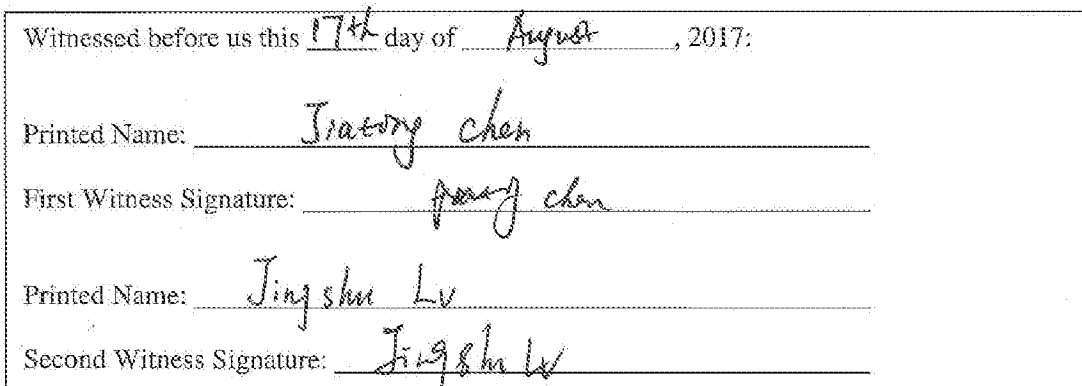 Witnessed before us this 17th day of August, 2017:
Printed Name: Jiatong chen
First Witness Signature: chen
Printed Name: Jingshu Lv
Second Witness Signature: Jingshu Lv